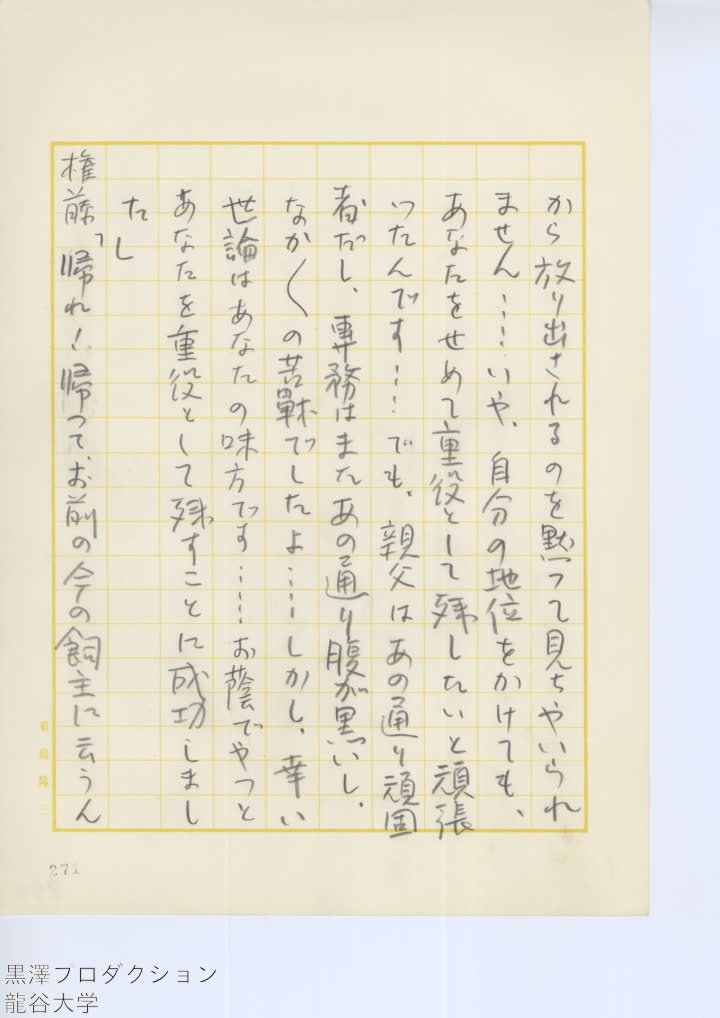 から放り出されるのを黙って見ちゃいられ
ません……いや、自分の地位をかけても、
あなたをせめて重役として残したいと頑張
ったんです……でも、親父はあの通り頑固
者だし、専務はまたあの通り腹が黒いし、
なか〱の苦戦でしたよ……しかし、幸い
世論はあなたの味方です……お蔭でやっと
あなたを重役として残すことに成功しまし
た」
権藤「帰れ！帰って、お前の今の飼主に云うん
271
黒澤プロダクション
龍谷大学